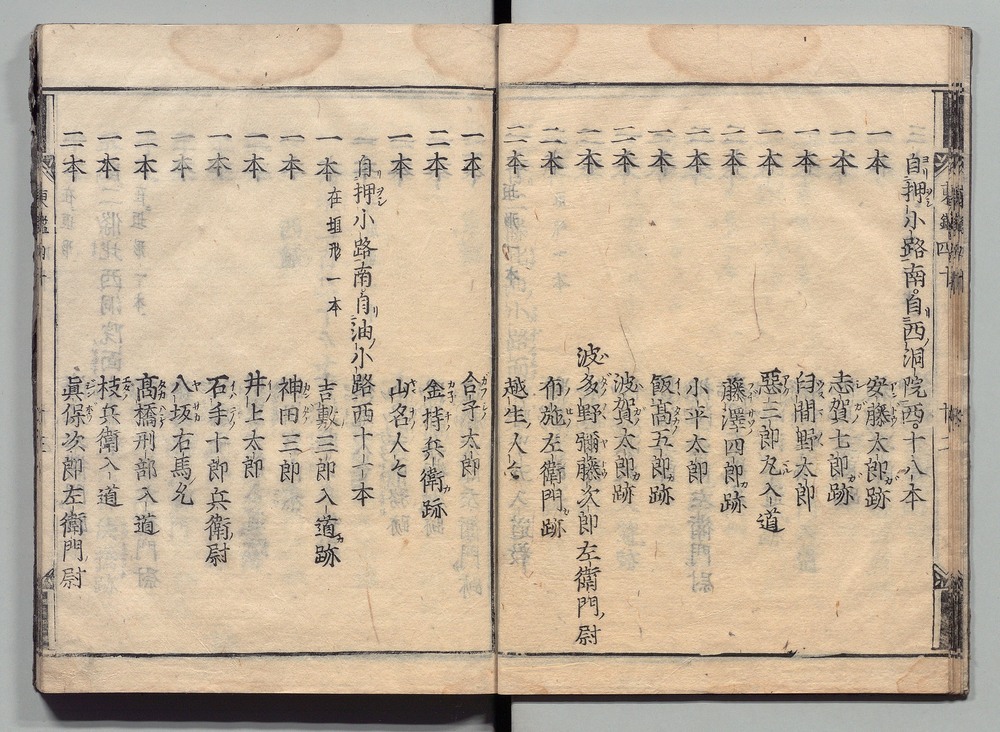 自押小路南自西洞院西十八本
一本 安藤太郎跡
一本 志賀七郎跡
一本 白間野太郎
一本 惡二郎九入道
二本 藤澤四郎跡
二本 小平太郎
一本 飯髙五郎跡
二本 波賀太郎跡
二本 波多野彌藤次郎左衛門尉
二本 布施左衛門跡
二本 越生人々
一本 合子太郎
二本 金持兵衛跡
一本 山名人々
自押小路南自油小路西十一本
一本 在垣形一本 吉敷三郎入道跡
一本 神田三郎
一本 井上太郎
一本 石手十郎兵衛尉
一本 八坂右馬允
二本 髙橋刑部入道
一本 枝兵衛入道
二本 眞保次郎左衛門尉